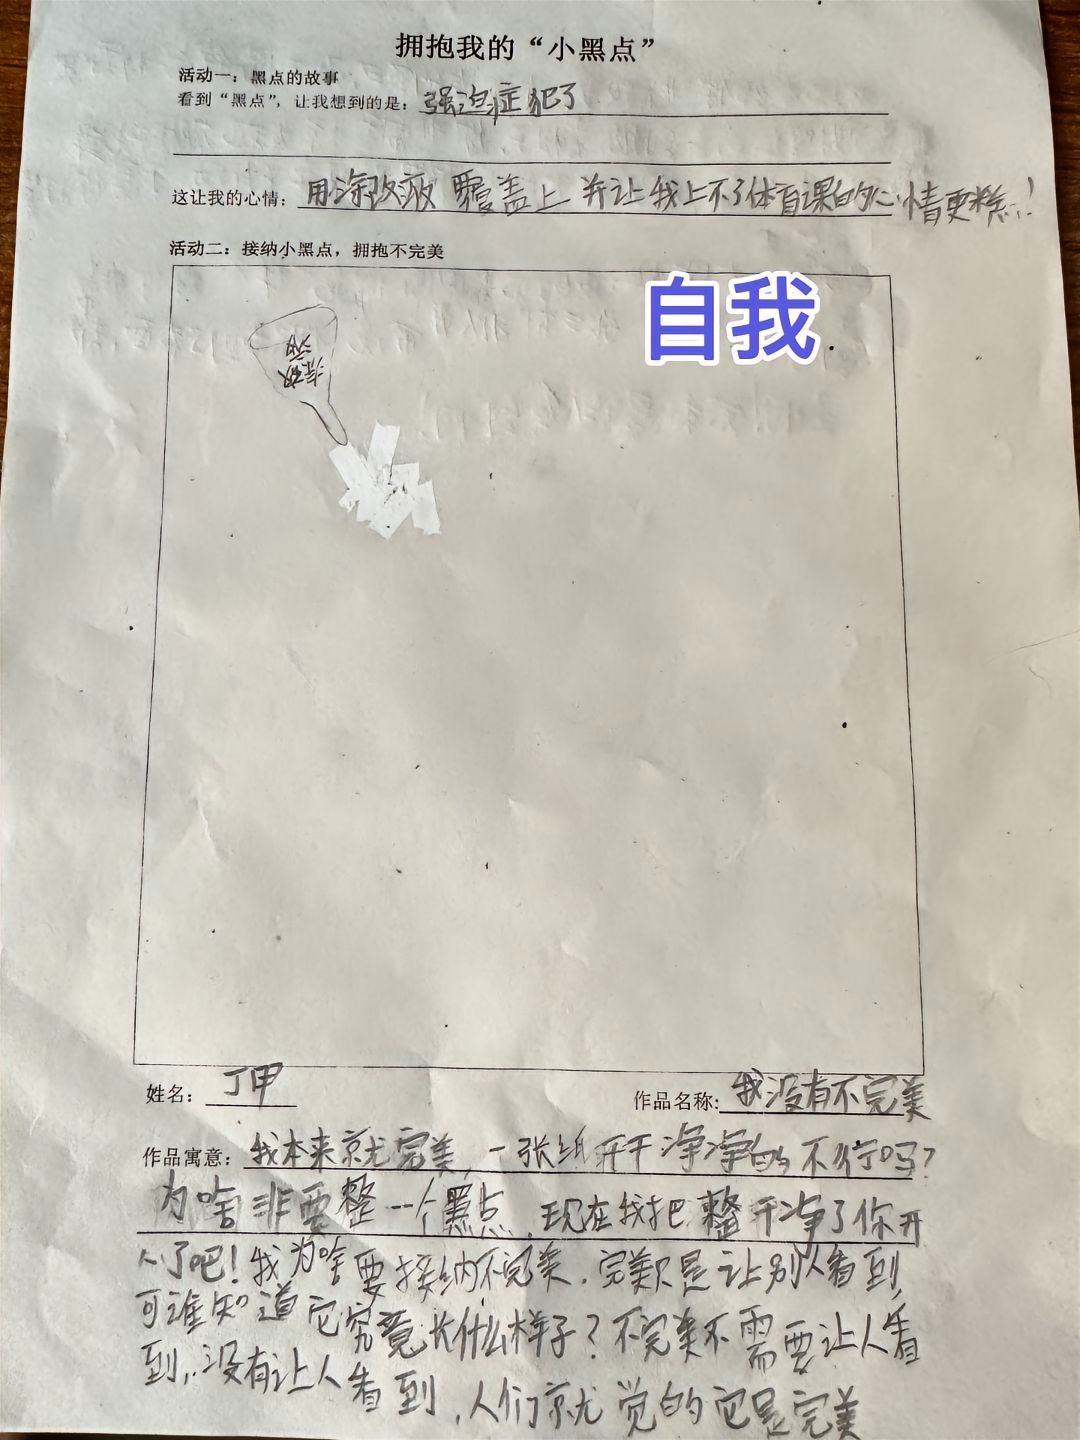 拥抱我的“小黑点”
活动一：黑点的故事
看到“黑点”，让我想到的是：强迫症犯了
这让我的心情：用涂改液覆盖上并让我上不了体育课的心情更糕！
活动二：接纳小黑点，拥抱不完美
自我
涂改液
姓名：丁甲
作品名称:我没有不完美
作品寓意：我本来就完美，一张纸干干净净的不行吗？
为啥非要整一个黑点，现在我把整干净了你开
心了吧！我为啥要接纳不完美，完美只是让别人看到，
可谁知道它究竟长什么样子？不完美不需要让人看
到，没有让人看到，人们就觉的它是完美